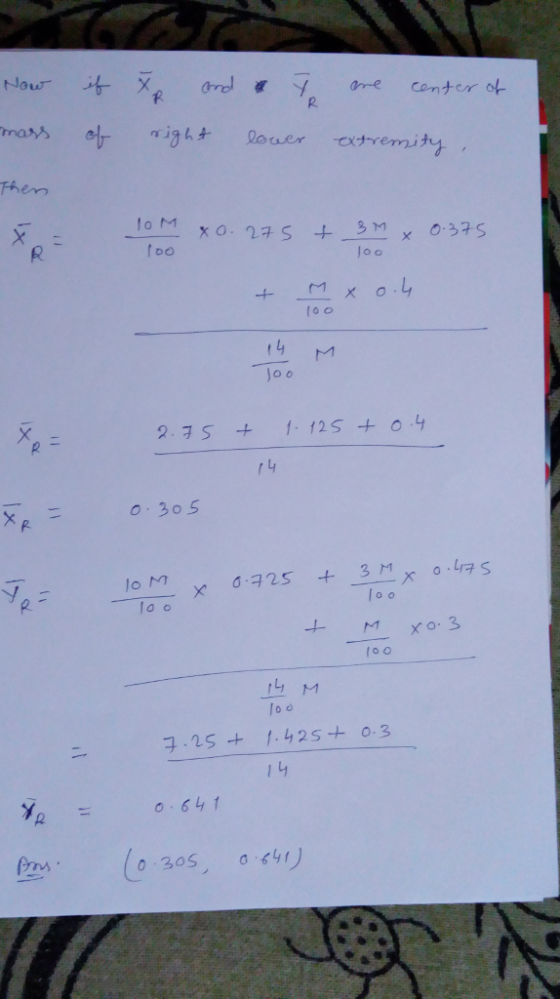 Now if X̄R and ȲR are center of
mass of right lower extremity.
Then
X̄R = 10M/100 × 0.275 + 3M/100 × 0.375
+ M/100 × 0.4
14/100 M
X̄R = 2.75 + 1.125 + 0.4
14
X̄R = 0.305
ȲR = 10M/100 × 0.725 + 3M/100 × 0.475
+ M/100 × 0.3
14/100 M
= 7.25 + 1.425 + 0.3
14
ȲR = 0.641
Ans. (0.305, 0.641)